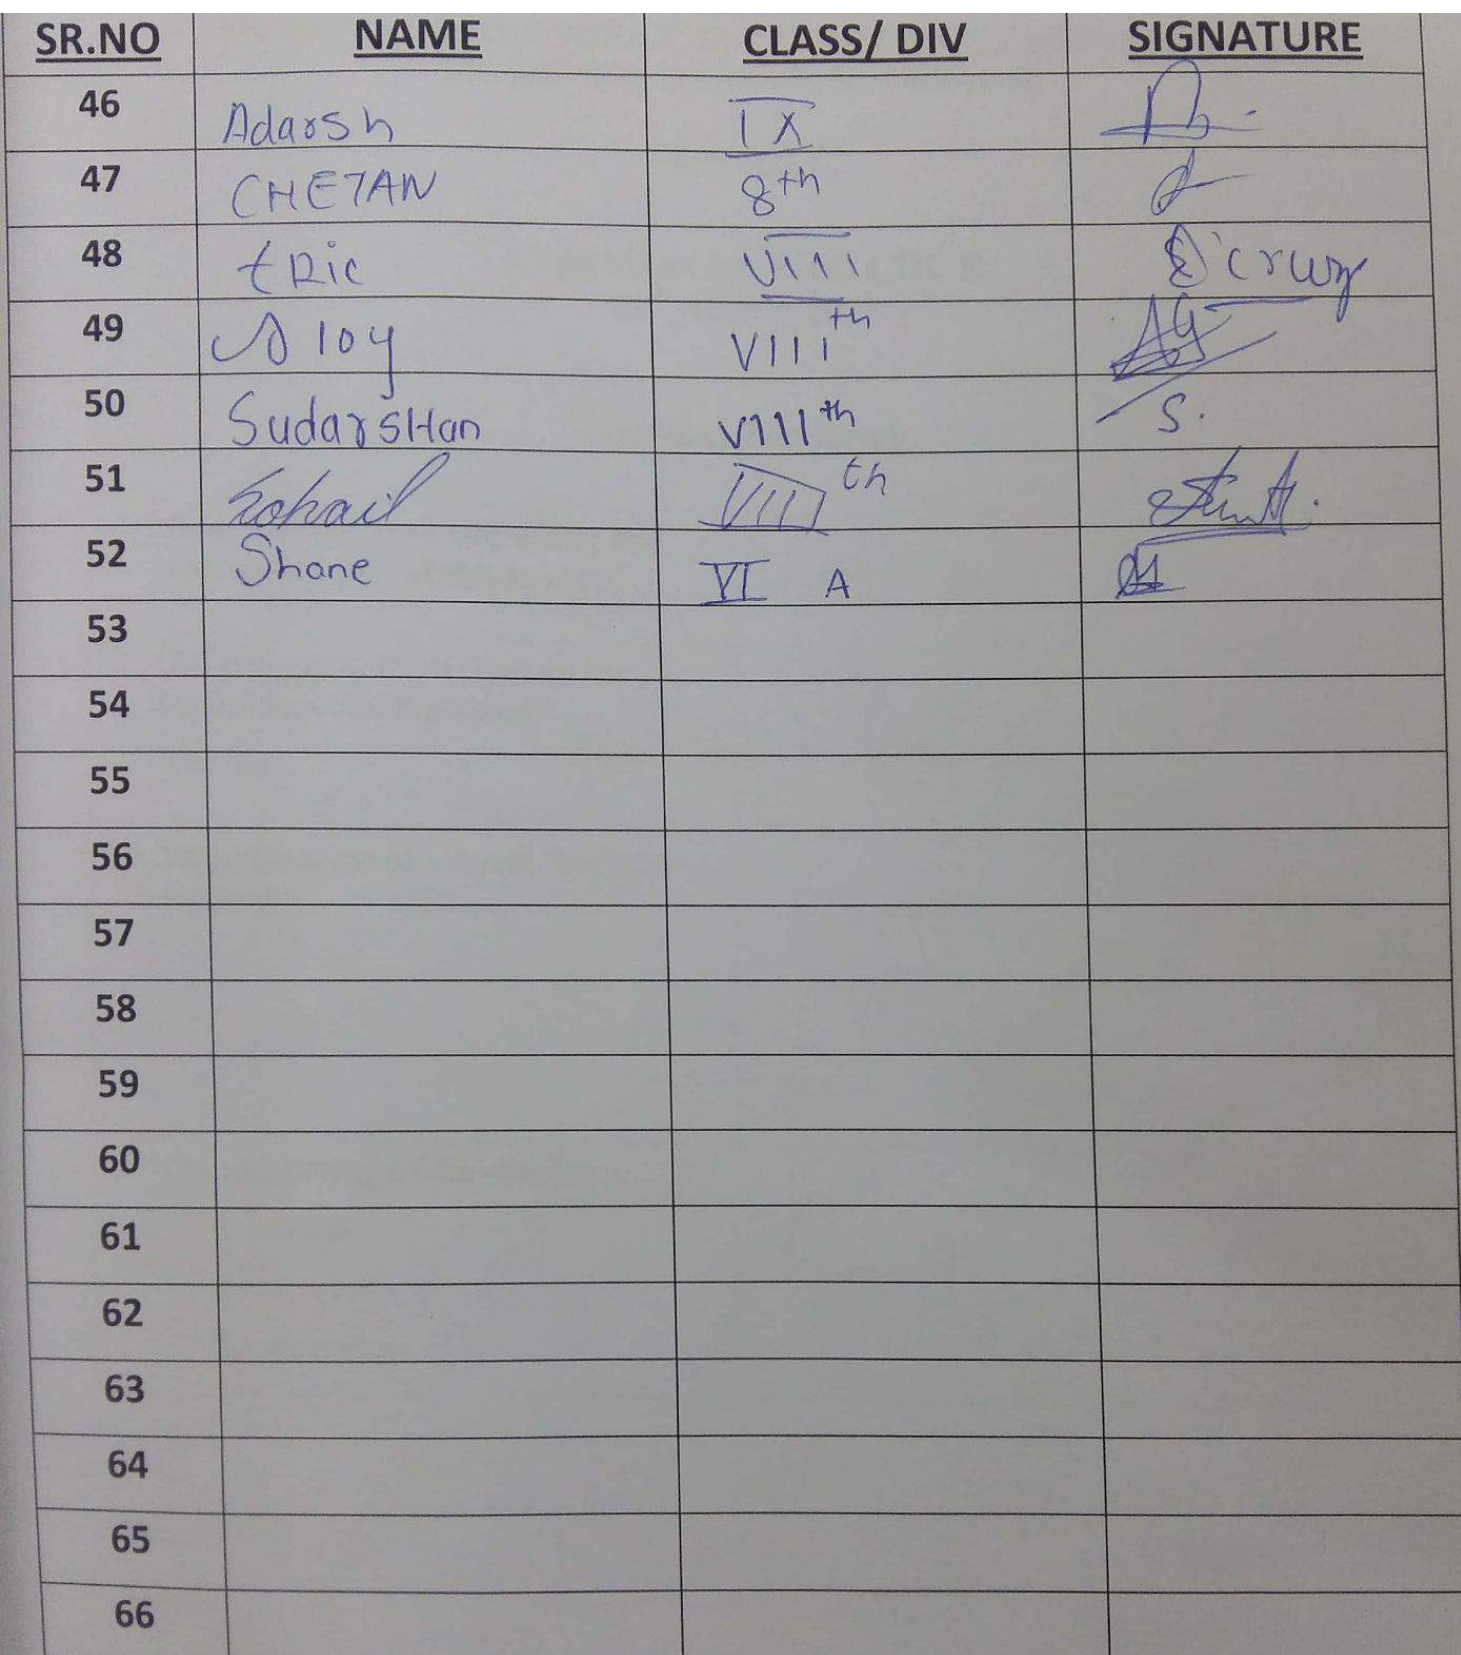 SR.NO NAME CLASS/ DIV SIGNATURE
46 Adarsh IX
47 CHETAN 8th
48 ERic VIII D'cruz
49 Aloy VIIIth
50 SudarsHan VIIIth S.
51 Sohail VIIIth
52 Shane VI A
53
54
55
56
57
58
59
60
61
62
63
64
65
66